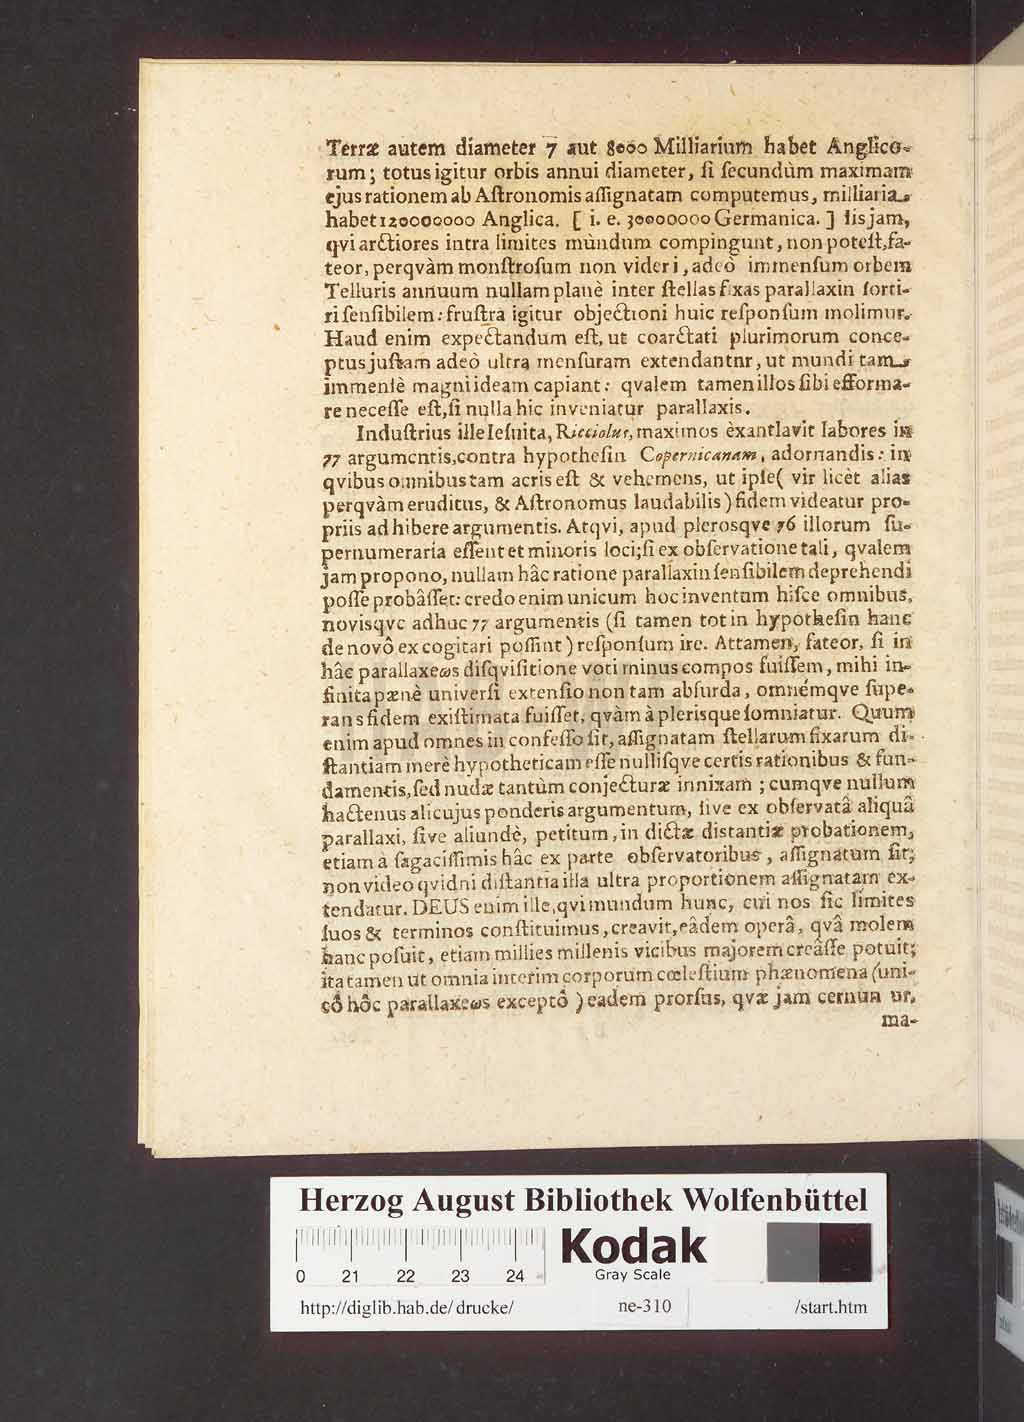 Terræ autem diameter 7 aut 8000 Milliarium habet Anglico-
rum; totus igitur orbis annui diameter, ſi ſecundùm maximam
ejus rationem ab Aſtronomis aſſignatam computemus, milliaria
habet 120000000 Anglica. [ i. e. 30000000 Germanica. ] Iis jam,
qvi arctiores intra limites mùndum compingunt, non poteſt, fa-
teor, perqvàm monſtroſum non videri, adeò immenſum orbem
Telluris annuum nullam planè inter ſtellas fixas parallaxin ſorti-
ri ſenſibilem: fruſtra igitur objectioni huic reſponſum molimur.
Haud enim expectandum eſt, ut coarctati plurimorum conce-
ptus juſtam adeò ultra menſuram extendantnr, ut mundi tam
immenſè magni ideam capiant: qvalem tamen illos ſibi efforma-
re neceſſe eſt, ſi nulla hic inveniatur parallaxis.
Induſtrius ille Ieſuita, Ricciolus, maximos èxantlavit labores in
77 argumentis, contra hypotheſin Copernicanam, adornandis: in
qvibus omnibus tam acris eſt & vehemens, ut ipſe ( vir licèt alias
perqvàm eruditus, & Aſtronomus laudabilis ) fidem videatur pro-
priis adhibere argumentis. Atqvi, apud plerosqve 76 illorum ſu-
pernumeraria eſſent et minoris loci; ſi ex obſervatione tali, qvalem
jam propono, nullam hâc ratione parallaxin ſenſibilem deprehendi
poſſe probâſſet: credo enim unicum hoc inventum hiſce omnibus,
novisqve adhuc 77 argumentis (ſi tamen tot in hypotheſin hanc
de novô excogitari poſſint ) reſponſum ire. Attamen, fateor, ſi in
hâc parallaxeως diſqviſitione voti minus compos fuiſſem, mihi in-
finita pænè univerſi extenſio non tam abſurda, omnémqve ſupe-
rans fidem exiſtimata fuiſſet, qvàm à plerisque ſomniatur. Quum
enim apud omnes in confeſſo ſit, aſſignatam ſtellarum fixarum di-
ſtantiam merè hypotheticam eſſe nulliſqve certis rationibus & fun-
damentis, ſed nudæ tantùm conjecturæ innixam ; cumqve nullum
hactenus alicujus ponderis argumentum, ſive ex obſervatâ aliquâ
parallaxi, ſive aliundè, petitum, in dictæ distantiæ probationem,
etiam à ſagaciſſimis hâc ex parte obſervatoribus, aſſignatum ſit;
non video qvidni diſtantia illa ultra proportionem aſſignatam ex-
tendatur. DEUS enim ille, qvi mundum hunc, cui nos ſic limites
ſuos & terminos conſtituimus, creavit, eâdem operâ, qvâ molem
hanc poſuit, etiam millies millenis vicibus majorem creâſſe potuit;
ita tamen ut omnia interim corporum cœleſtium phænomena (uni-
cô hôc parallaxeως exceptô ) eadem prorſus, qvæ jam cernun ur,
ma-
Herzog August Bibliothek Wolfenbüttel
0 21 22 23 24
Kodak
Gray Scale
http://diglib.hab.de/ drucke/ ne-310 /start.htm